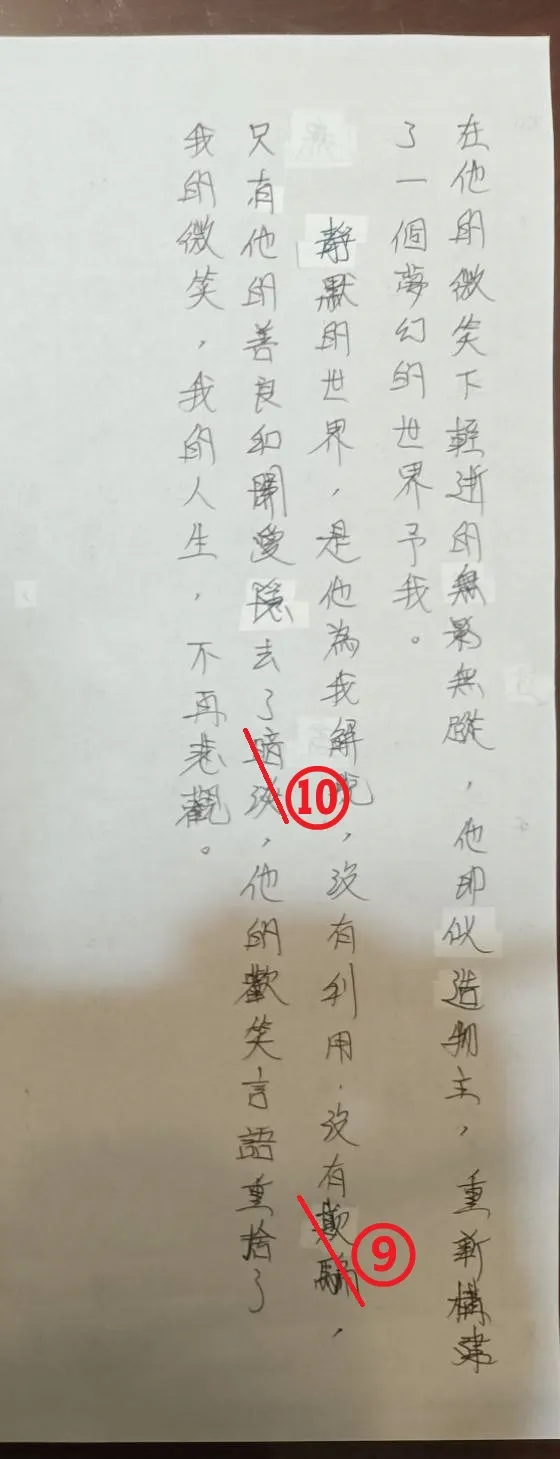 在他的微笑下輕逝的無影無蹤，他即似造物主，重新構建
了一個夢幻的世界予我。
靜默的世界，是他為我解說，沒有利用，沒有欺騙，
只有他的善良和關愛隱去了暗淡，他的歡笑言語重拾了
我的微笑，我的人生，不再悲觀。
⑩
⑨